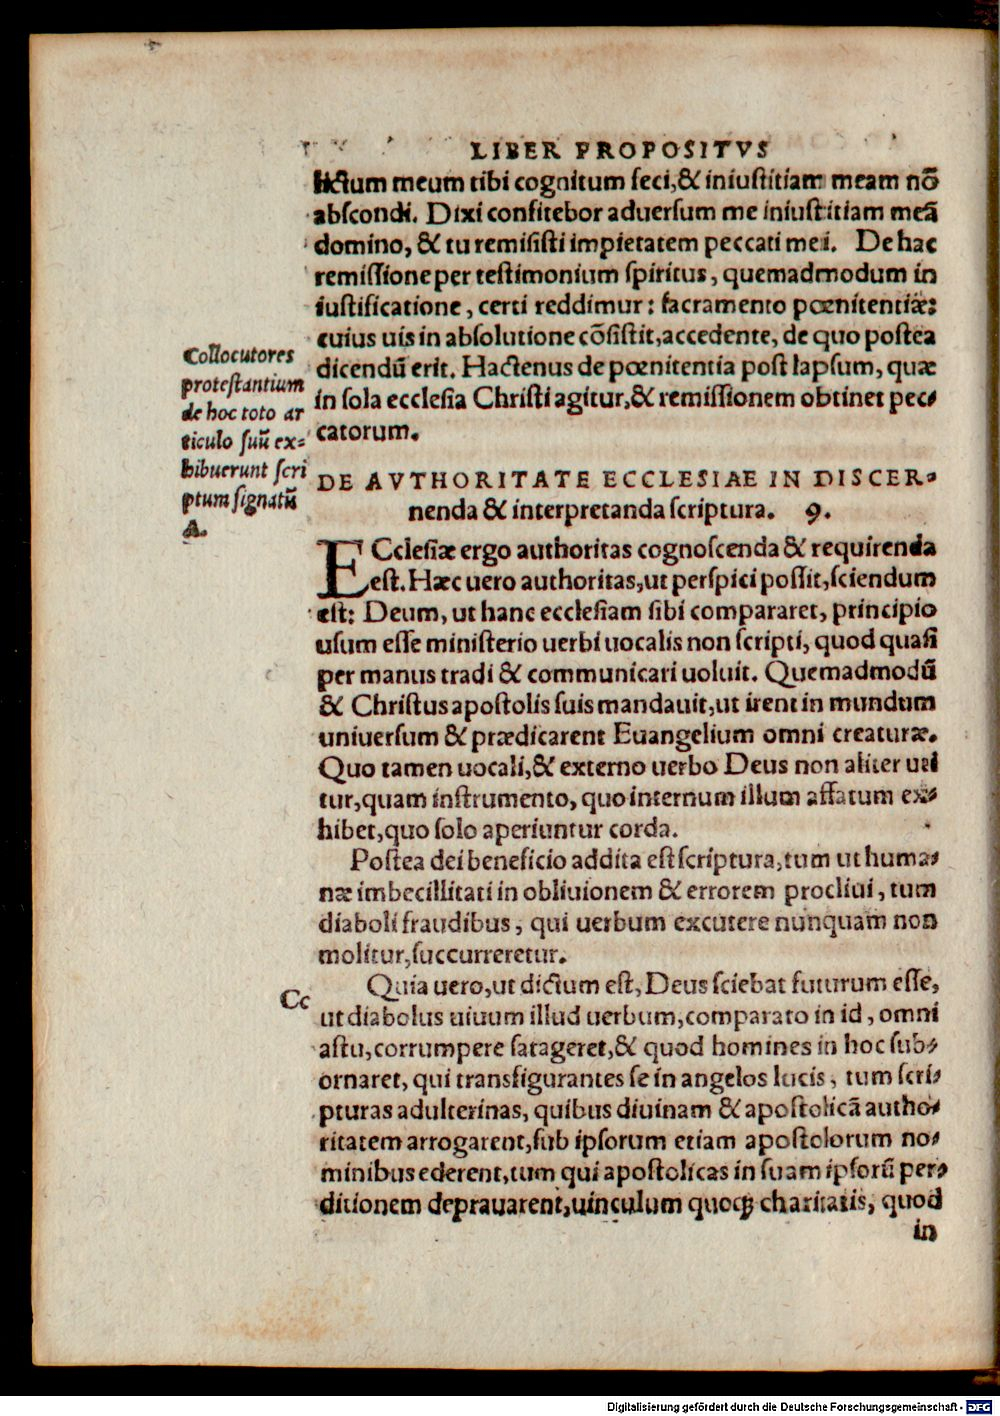 LIBER PROPOSITVS
lictum meum tibi cognitum feci,& iniustitiam meam nõ
abscondi. Dixi confitebor aduersum me iniustitiam meã
domino, & tu remisisti impietatem peccati mei. De hac
remissione per testimonium spiritus, quemadmodum in
iustificatione, certi reddimur: sacramento pœnitentiæ:
cuius uis in absolutione cõsistit,accedente, de quo postea
dicendũ erit. Hactenus de pœnitentia post lapsum, quæ
in sola ecclesia Christi agitur,& remissionem obtinet pec-
catorum.
Collocutores
protestantium
de hoc toto ar
ticulo suũ ex-
hibuerunt scri
ptum signatũ
A.
DE AVTHORITATE ECCLESIAE IN DISCER-
nenda & interpretanda scriptura. 9.
ECclesiæ ergo authoritas cognoscenda & requirenda
est. Hæc uero authoritas,ut perspici possit,sciendum
est: Deum, ut hanc ecclesiam sibi compararet, principio
usum esse ministerio uerbi uocalis non scripti, quod quasi
per manus tradi & communicari uoluit. Quemadmodũ
& Christus apostolis suis mandauit,ut irent in mundum
uniuersum & prædicarent Euangelium omni creaturæ.
Quo tamen uocali,& externo uerbo Deus non aliter uti
tur,quam instrumento, quo internum illum affatum ex-
hibet,quo solo aperiuntur corda.
Postea dei beneficio addita est scriptura,tum ut huma-
næ imbecillitati in obliuionem & errorem procliui, tum
diaboli fraudibus, qui uerbum excutere nunquam non
molitur,succurreretur.
Cc
Quia uero,ut dictum est, Deus sciebat futurum esse,
ut diabolus uiuum illud uerbum,comparato in id, omni
astu,corrumpere satageret,& quod homines in hoc sub-
ornaret, qui transfigurantes se in angelos lucis, tum scri-
pturas adulterinas, quibus diuinam & apostolicã autho-
ritatem arrogarent,sub ipsorum etiam apostolorum no-
minibus ederent,tum qui apostolicas in suam ipsorũ per-
ditionem deprauarent,uinculum quoqꝫ charitatis, quod
in
Digitalisierung gefördert durch die Deutsche Forschungsgemeinschaft - DFG